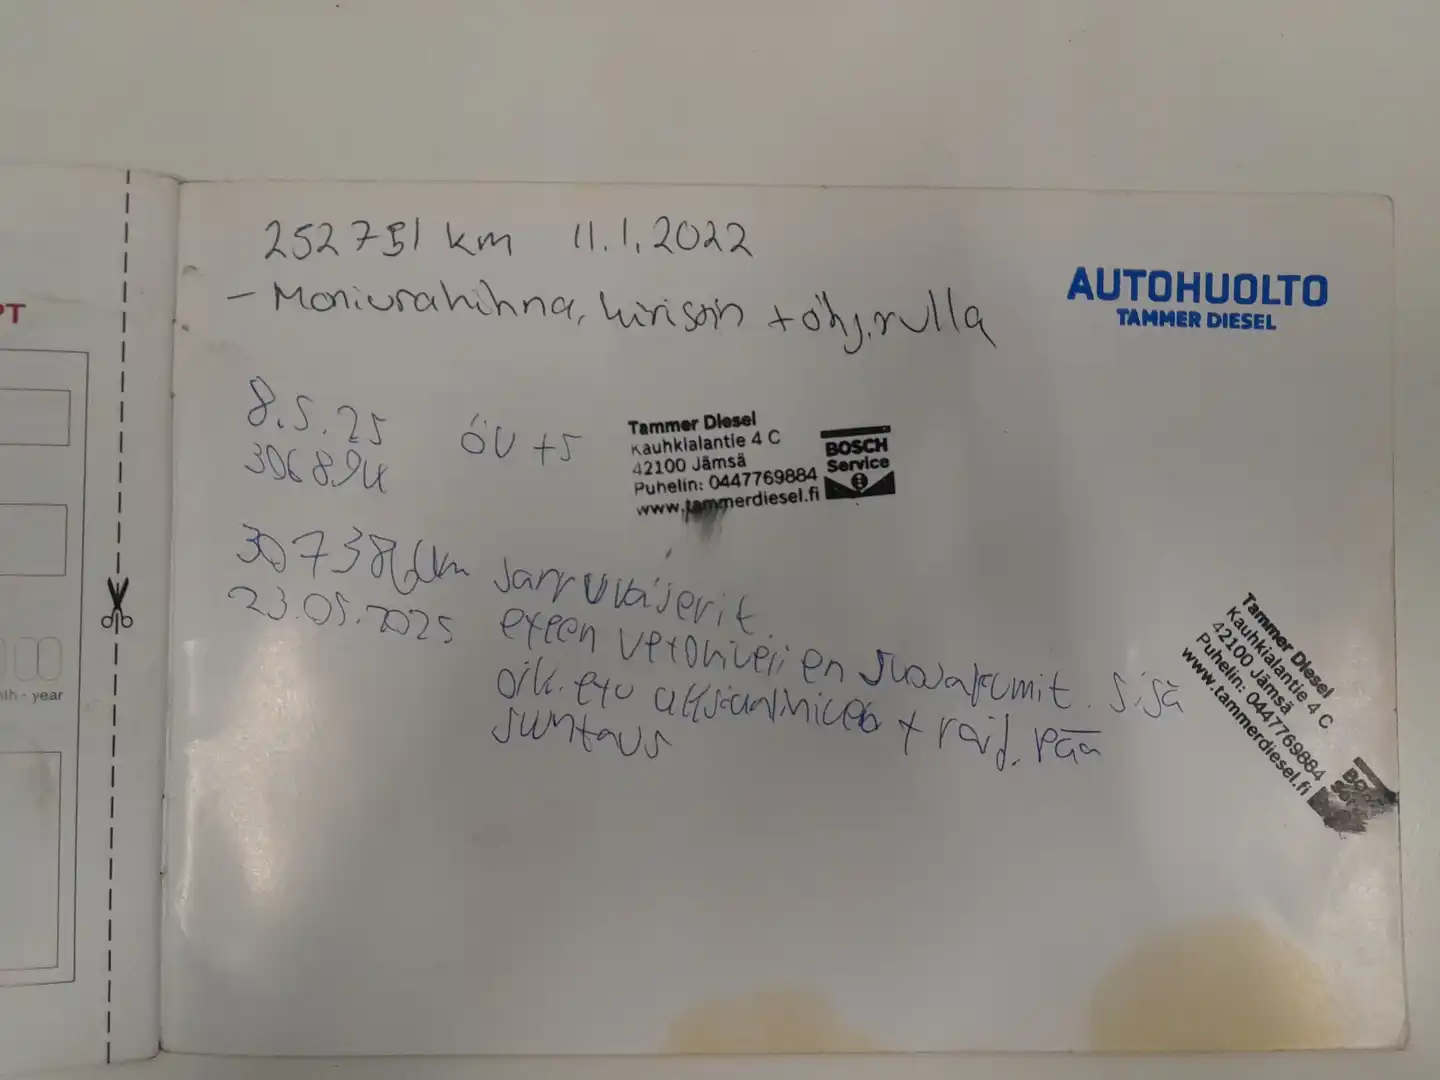 PT
nth - year
252751 km 11.1.2022
- Moniurahihna, kiristin + ohj.rulla
AUTOHUOLTO
TAMMER DIESEL
8.5.25 ÖV + S
306894
Tammer Diesel
Kauhkialantie 4 C
42100 Jämsä
Puhelin: 0447769884
www.tammerdiesel.fi
BOSCH
Service
km Jarru
23.05.2025 eteen vetonivelien suojakumit. sisä
oik. etu + raid. pää
suntaus
Tammer Diesel
Kauhkialantie 4 C
42100 Jämsä
Puhelin: 0447769884
www.tammerdiesel.fi